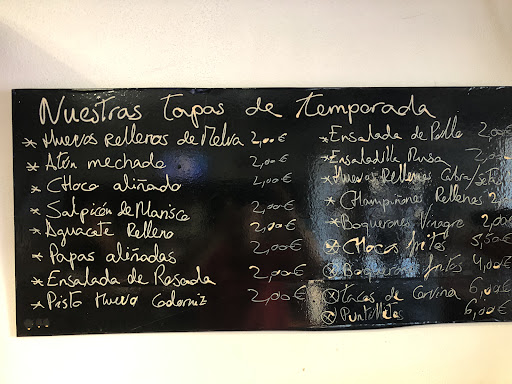 Nuestras Tapas de Temporada
* Huevos Rellenos de Melva 2,00€
* Atún mechado 2,00€
* CHoco aliñado 2,00€
* Salpicón de Marisco 2,00€
* Aguacate Relleno 2,00€
* Papas aliñadas 2,00€
* Ensalada de Rosada 2,00€
* Pisto Huevo Codorniz 2,00€
* Ensalada de Pollo 2,00
* Ensaladilla Rusa 2,00
* Huevos Rellenos
* CHampiñones Rellenos
* Boquerones Vinagre 2,00
* CHocos fritos 5,50€
* Boquerones fritos 4,00€
* Tacos de Corvina 6,00€
* Puntillitas 6,00€